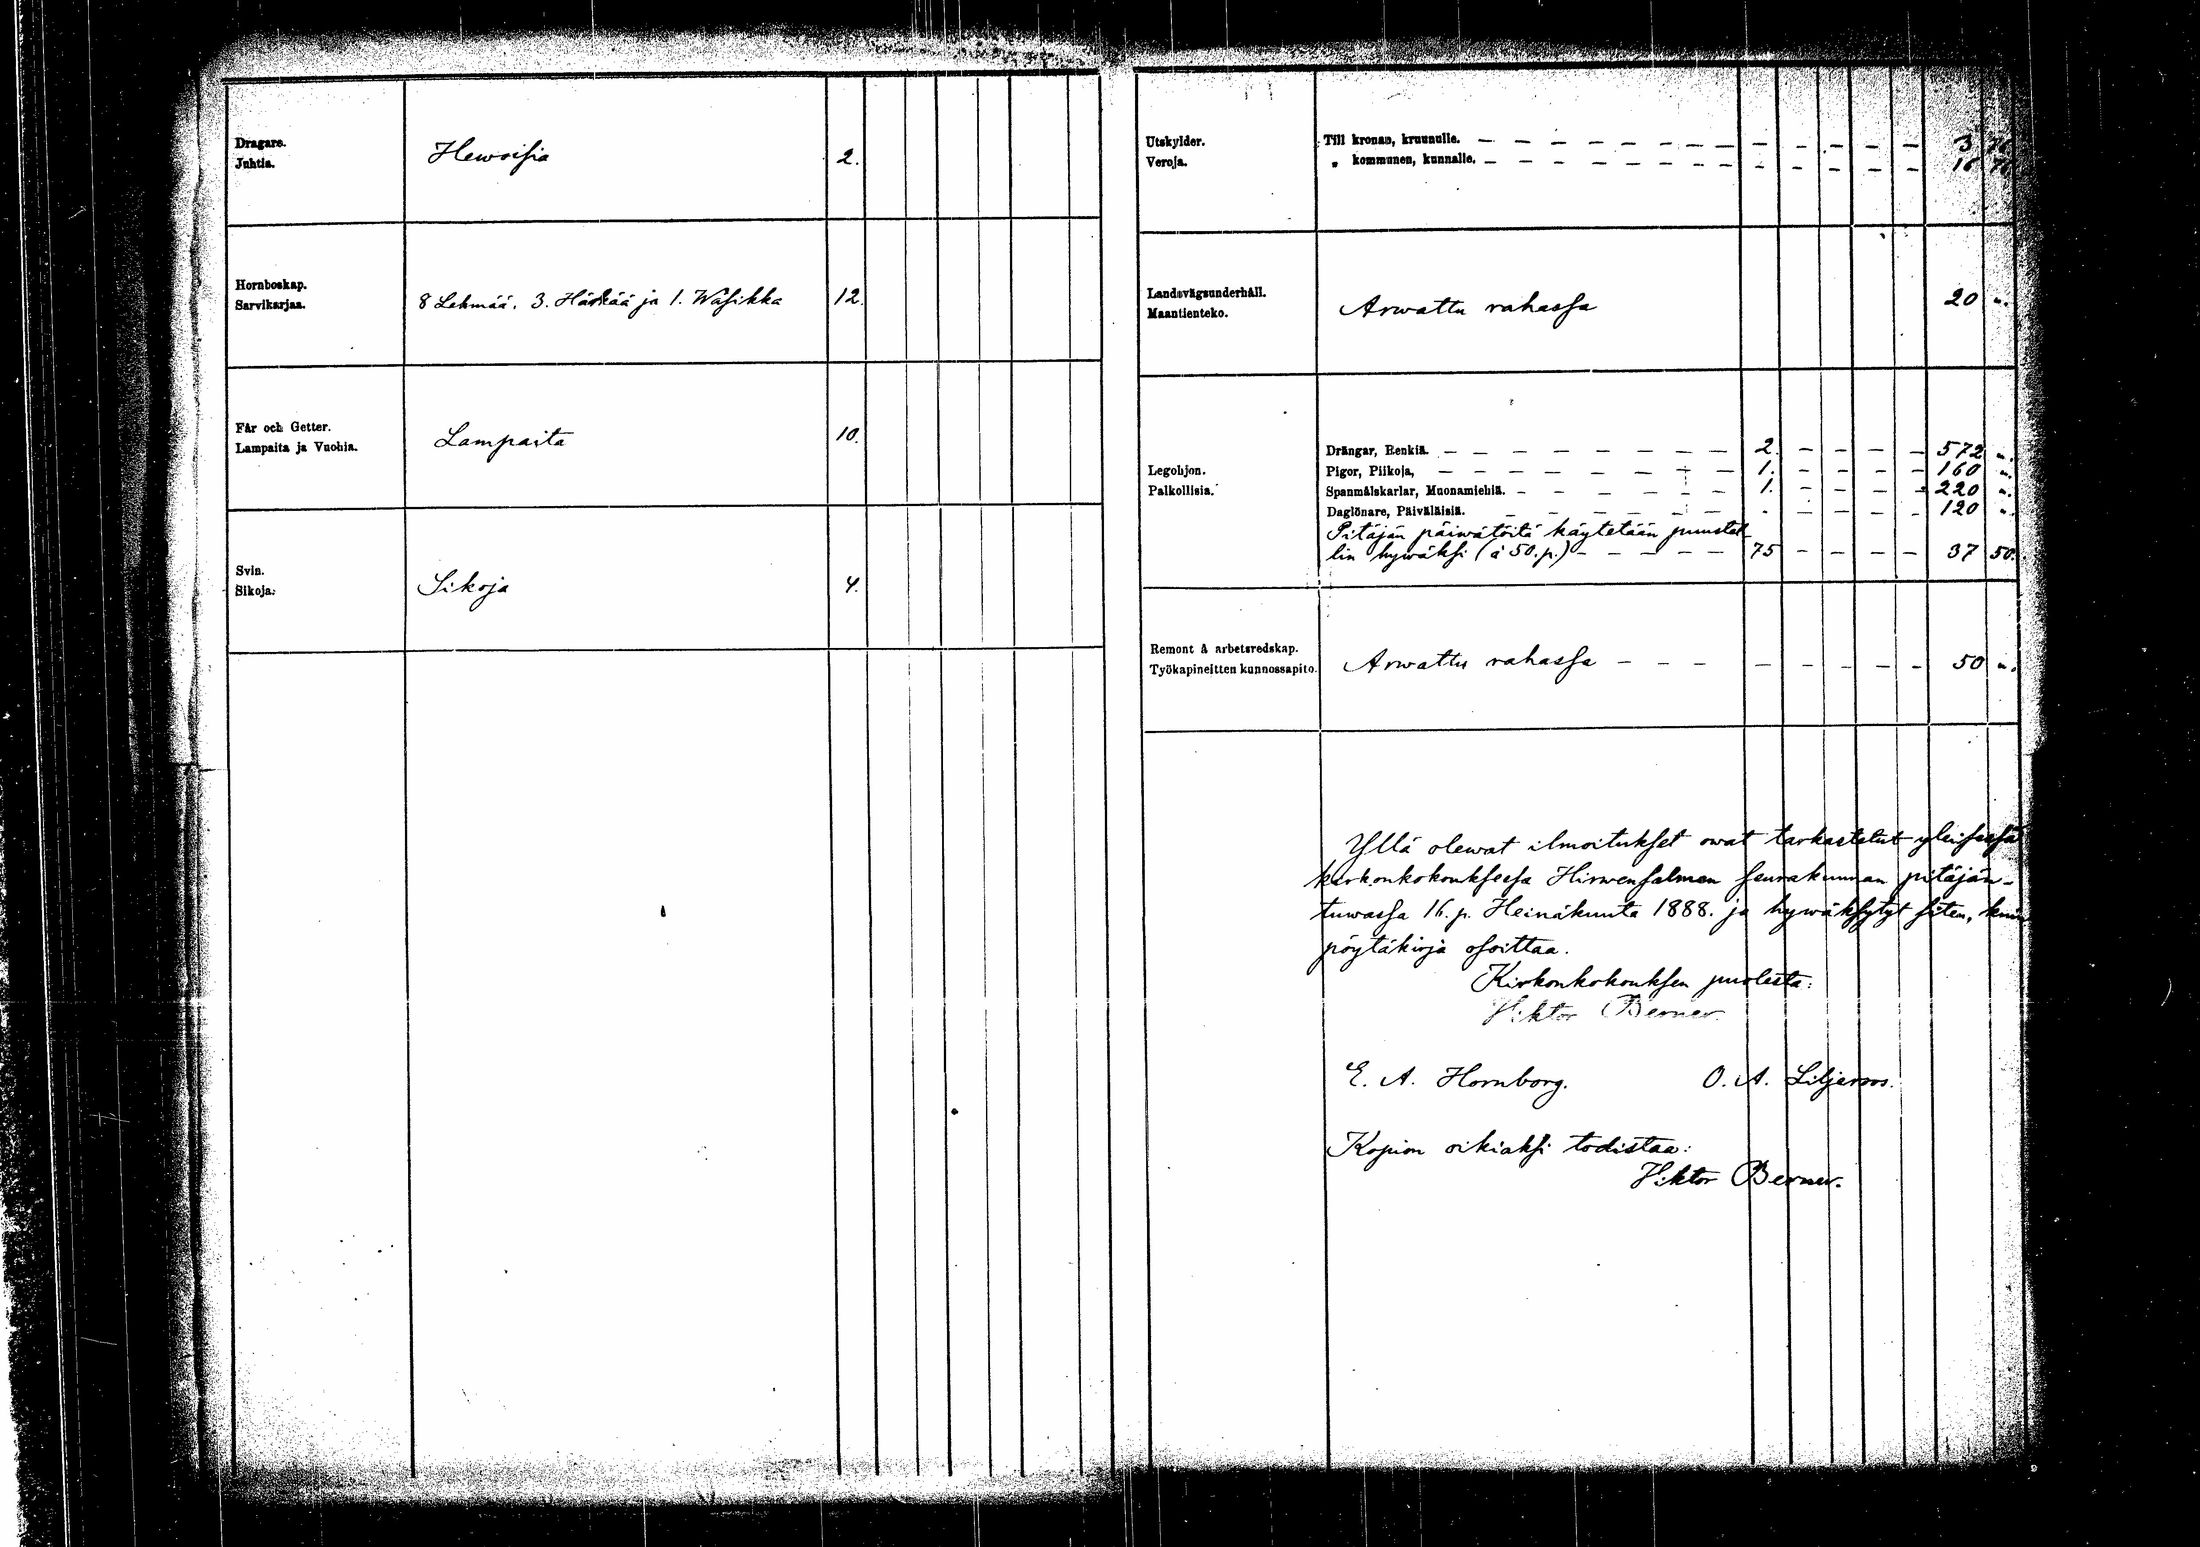 Dragare.
Juhtia.
Hewoisia
2.
Hornboskap.
Sarvikarjaa.
8 Lehmää. 3. Härkää ja 1. Wasikka
12.
Får och Getter.
Lampaita ja Vuohia.
Lampaita
10.
Svin.
Sikoja.
Sikoja
4.
Utskylder.
Veroja.
Till kronan, kruunulle. — — — — — — — — — — — — — — 3 76
„ kommunen, kunnalle. — — — — — — — — — — — — — — 16 76
Landsvägsunderhåll.
Maantienteko.
Arwattu rahassa
20 „.
Legohjon.
Palkollisia.
Drängar, Renkiä. — — — — — — — 2. — — — — 572 „.
Pigor, Piikoja, — — — — — — — 1. — — — — 160 „.
Spanmålskarlar, Muonamiehiä. — — — — — 1. — — — — 220 „.
Daglönare, Päiväläisiä. — — — — — — - — — — — 120 „.
Pitäjän päiwätöitä käytetään puustel-
lin hywäksi (à 50. p.) — — — — — 75 — — — — 37 50.
Remont å arbetsredskap.
Työkapineitten kunnossapito.
Arwattu rahassa — — — — — — — — — 50 „.
Yllä olewat ilmoitukset owat tarkastetut yleisessä
kirkonkokouksessa Hirwensalmen seurakunnan pitäjän-
tuwassa 16. p. Heinäkuuta 1888. ja hywäksytyt siten, kuin
pöytäkirja osoittaa.
Kirkonkokouksen puolesta:
Viktor Berner.
E. A. Hornborg. O. A. Liljeroos.
Kopion oikiaksi todistaa:
Viktor Berner.